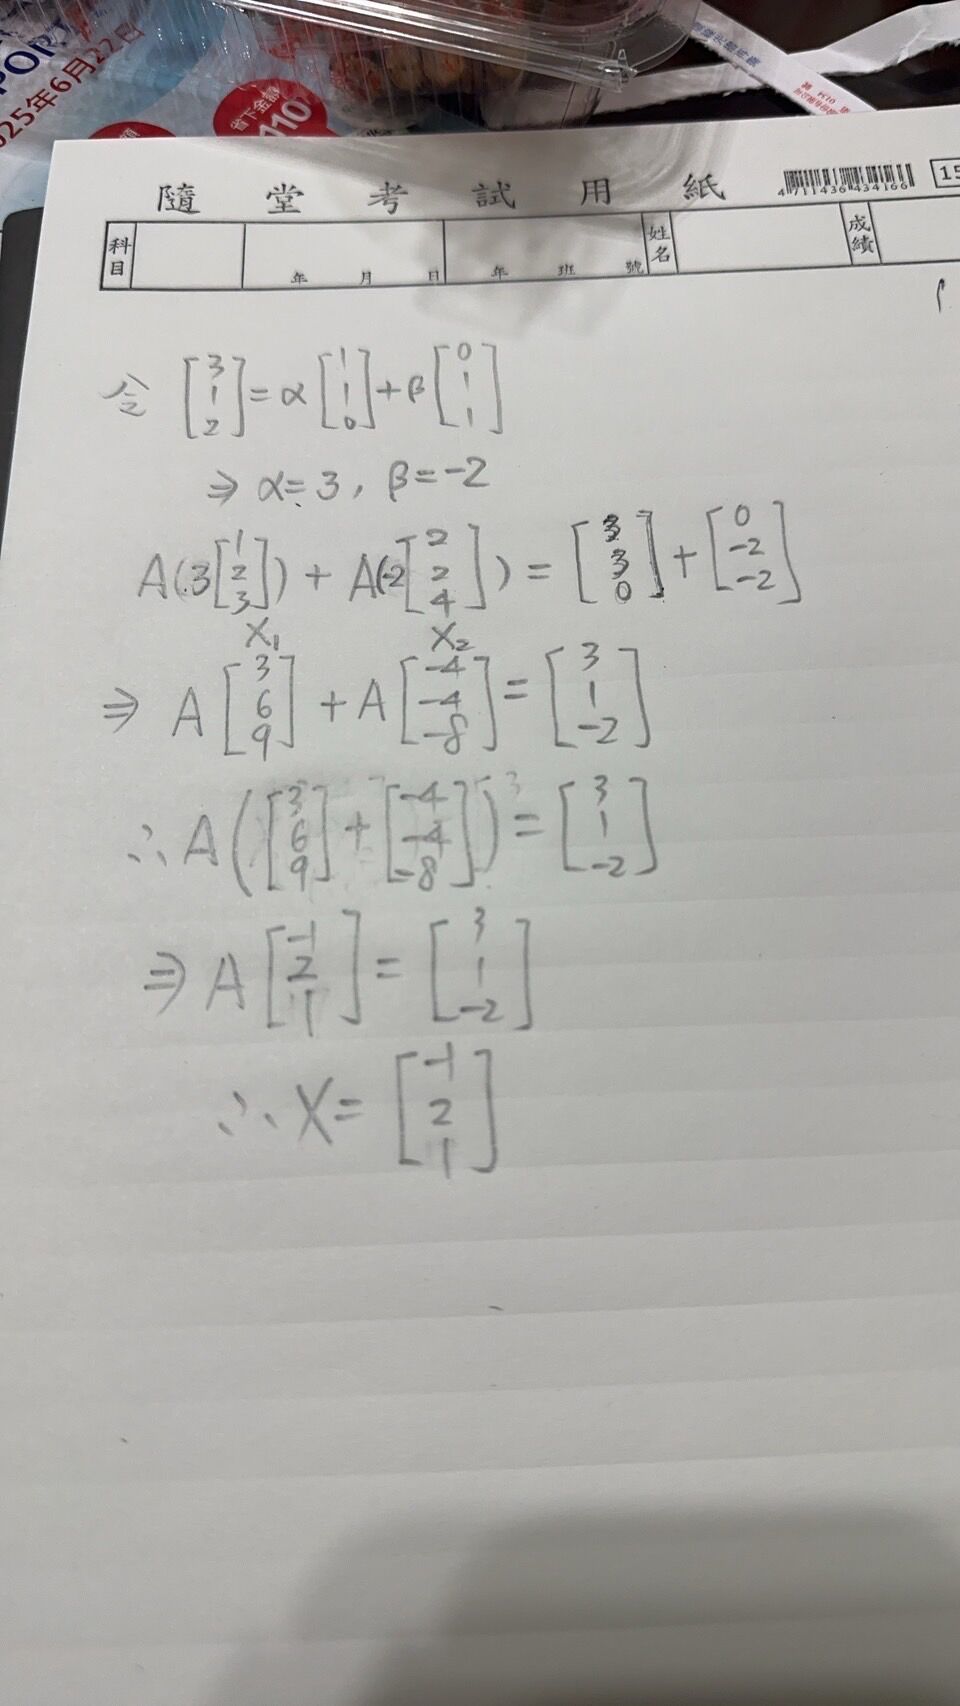 PORT
025年6月22日
省下金額
110
4 711436 434166
15
隨堂考試用紙
科目 年 月 日 年 班 號 姓名 成績
令 [3 1 2] = α [1 1 0] + β [0 1 1]
⇒ α = 3 , β = -2
A(3 [1 2 3]) + A(-2 [2 2 4]) = [3 3 0] + [0 -2 -2]
X₁ X₂
⇒ A [3 6 9] + A [-4 -4 -8] = [3 1 -2]
∴ A ( [3 6 9] + [-4 -4 -8] ) = [3 1 -2]
⇒ A [-1 2 1] = [3 1 -2]
∴ X = [-1 2 1]